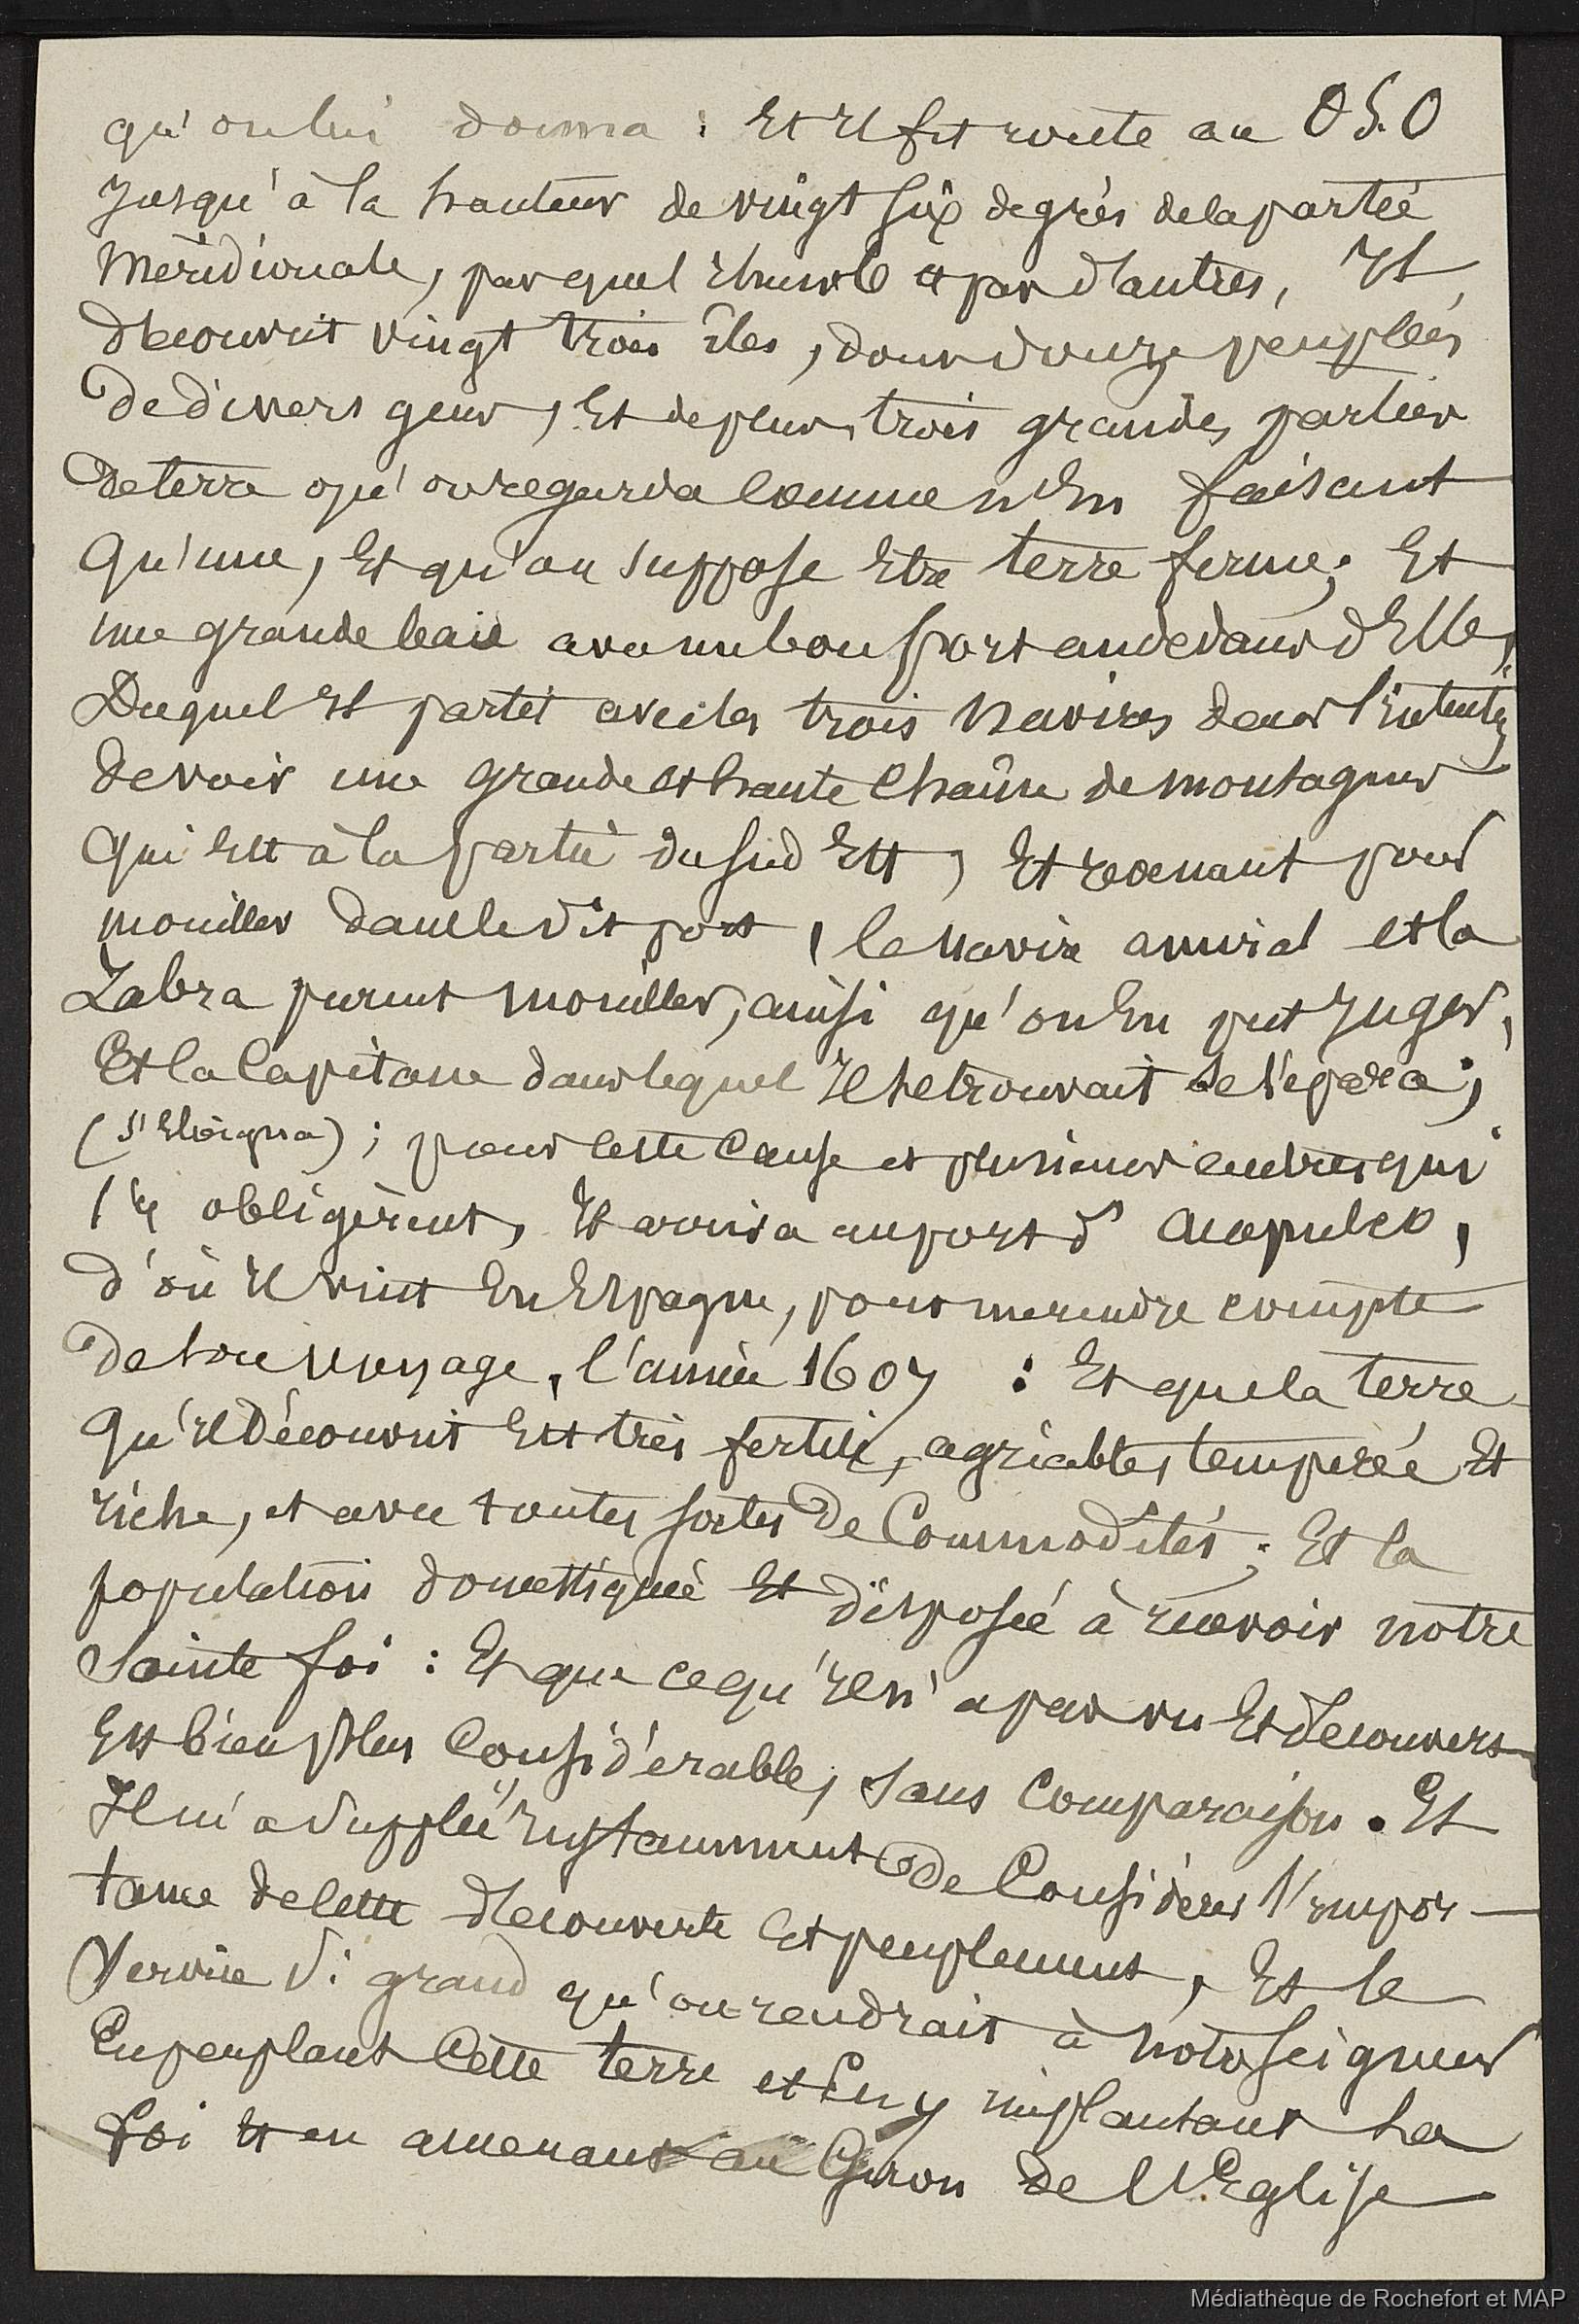 qu'on lui donna : Et Il fit route au O S. O
Jusqu'à la hauteur de vingt six degrés de la partie
Méridionale, par quel et par d'autres, Il
découvrit vingt trois îles, dont douze peuplées
De divers gens, Et de plus, trois grandes parties
De terre qu'on regarda comme n'En faisant
Qu'une, Et qu'on suppose Etre terre ferme; Et
une grande baie avec un bon port au dedans d'Elle,
Duquel Il partit avec les trois Navires dans l'intente
de voir une grande et haute Chaîne de montagnes
Qui Est à la partie du Sud Est, Et revenant pour
mouiller dans le dit port, le navire amiral et la
Zabra purent mouiller, ainsi qu'on En put Juger,
Et la Capitane dans lequel Il se trouvait se sépara;
(s'Eloigna); pour cette Cause et plusieurs autres qui
l'y obligèrent, Il arriva au port d'Acapulco,
d'où Il vint En Espagne, pour me rendre compte
De son voyage, l'année 1607 : Et que la terre
Qu'Il Découvrit Est très fertile, agréable, temperée Et
riche, et avec toutes sortes De Commodités; Et la
population domestiquée Et disposée à recevoir notre
Sainte foi : Et que ce qu'Il n'a pas vu Et découvert
Est bien plus Considérable, sans Comparaison. Et
Il m'a supplié Instamment De Considérer l'Impor-
tance de cette découverte Et peuplement, Et le
Service si grand qu'on rendrait à Notre Seigneur
En peuplant Cette terre et En y implantant sa
Foi Et en amenant au Giron de l'Eglise
Médiathèque de Rochefort et MAP